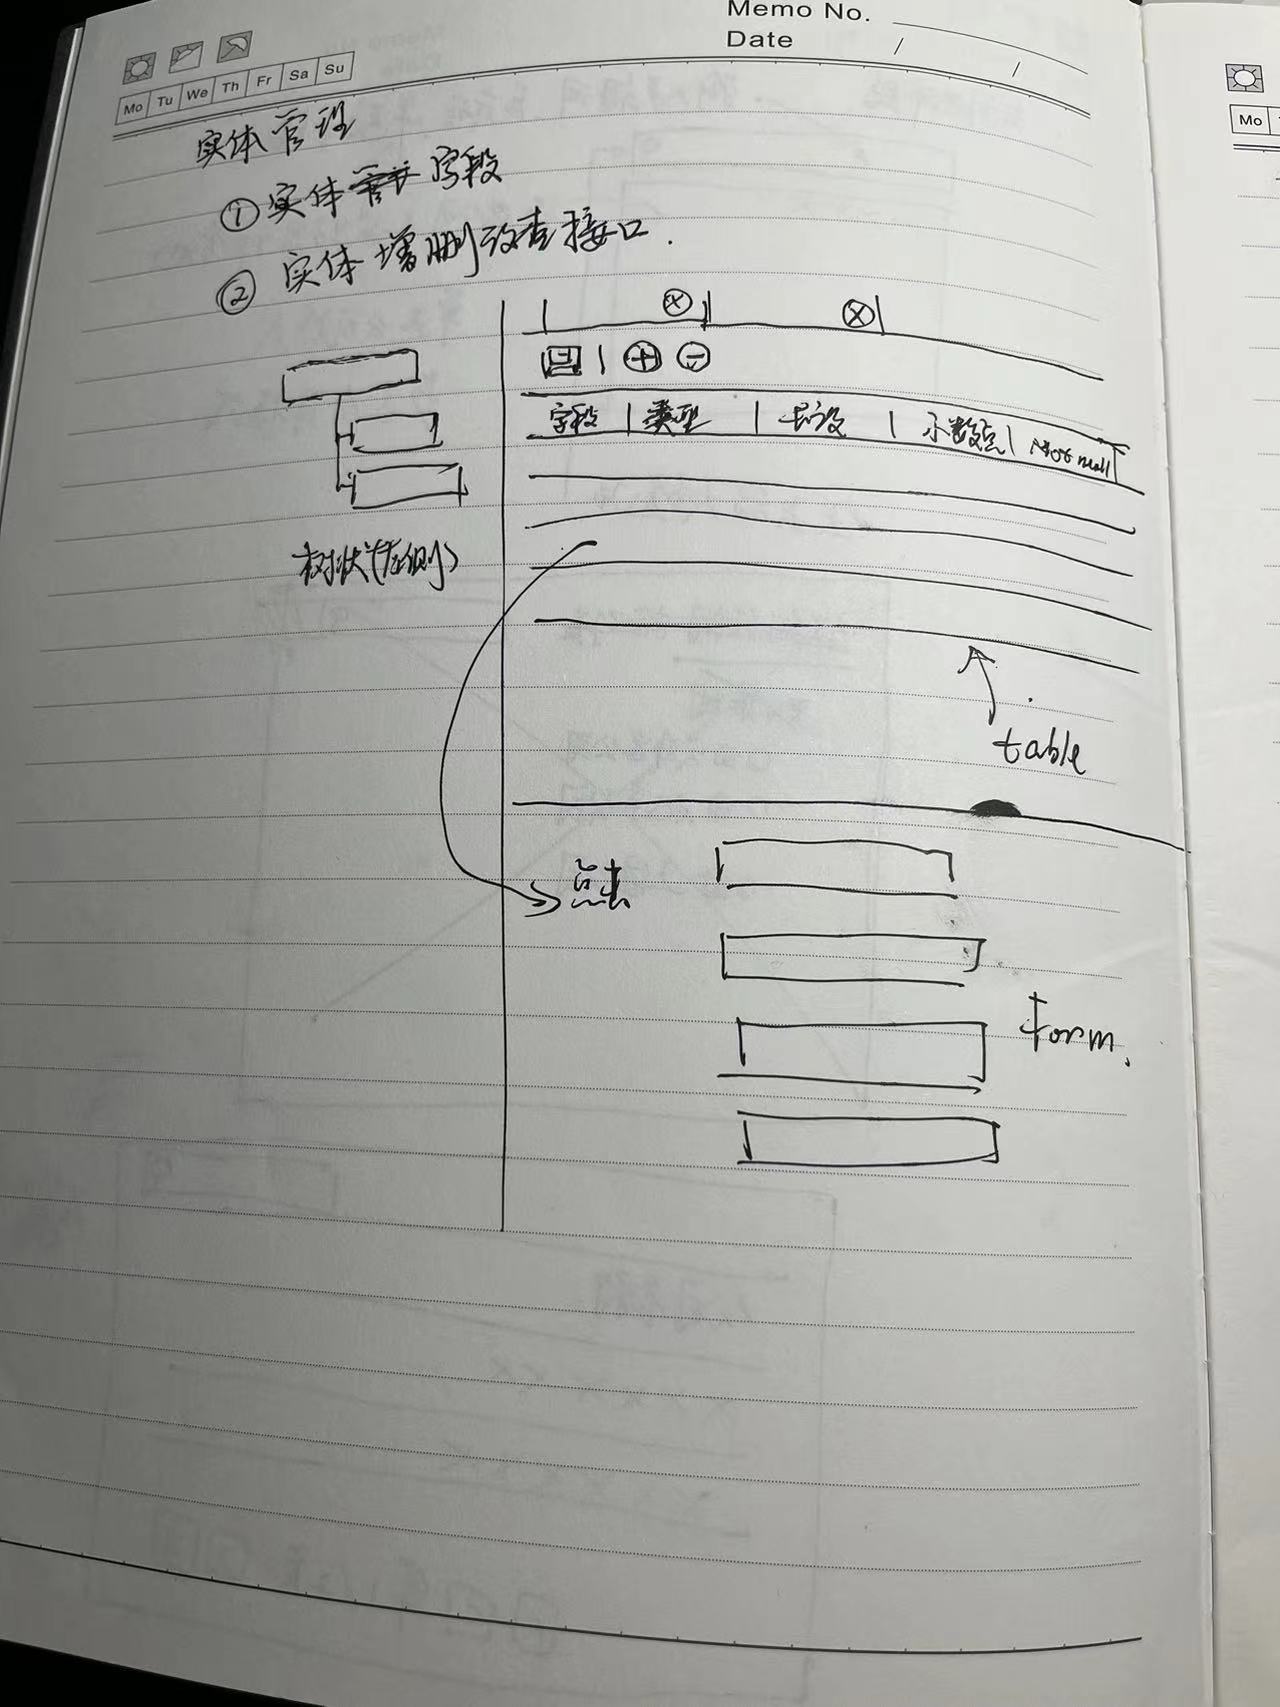 Memo No.
Date / /
Mo Tu We Th Fr Sa Su
Mo
实体管理
① 实体字段
② 实体增删改查接口.
字段 | 类型 | 长度 | 小数点 | Not null
树状(左侧)
table
点击
form.